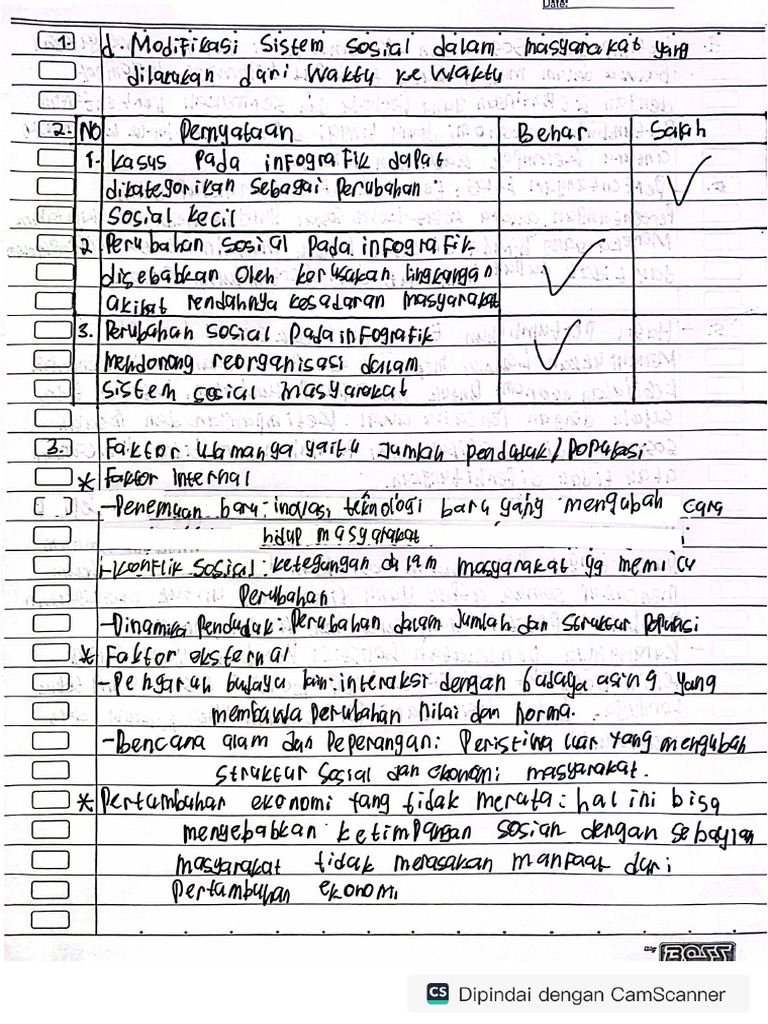 Date:
1. d. Modifikasi Sistem sosial dalam masyarakat yang
dilarakan dari waktu ke waktu
2. No Pernyataan Benar Salah
1. kasus pada infografik dapat
dikategorikan sebagai perubahan
sosial kecil
2. Perubahan sosial pada infografik
disebabkan oleh kerusakan lingkungan
akibat rendahnya kesadaran masyarakat
3. Perubahan sosial pada infografik
mendorong reorganisasi dalam
sistem sosial masyarakat
3. Faktor utamanya yaitu Jumlah penduduk/Populasi
* Faktor Internal
-Penemuan baru: inovasi teknologi baru yang mengubah cara
hidup masyarakat
-Konflik Sosial: ketegangan dalam masyarakat yg memicu
Perubahan
-Dinamika Penduduk: Perubahan dalam Jumlah dan Struktur Populasi
* Faktor eksternal
-Pengaruh budaya lain: interaksi dengan budaya asing yang
membawa perubahan nilai dan norma.
-Bencana alam dan Peperangan: Peristiwa luar yang mengubah
struktur sosial dan ekonomi masyarakat.
* Pertumbuhan ekonomi yang tidak merata: hal ini bisa
menyebabkan ketimpangan sosian dengan sebagian
masyarakat tidak merasakan manfaat dari
Pertumbuhan ekonomi
BOSS
CS Dipindai dengan CamScanner